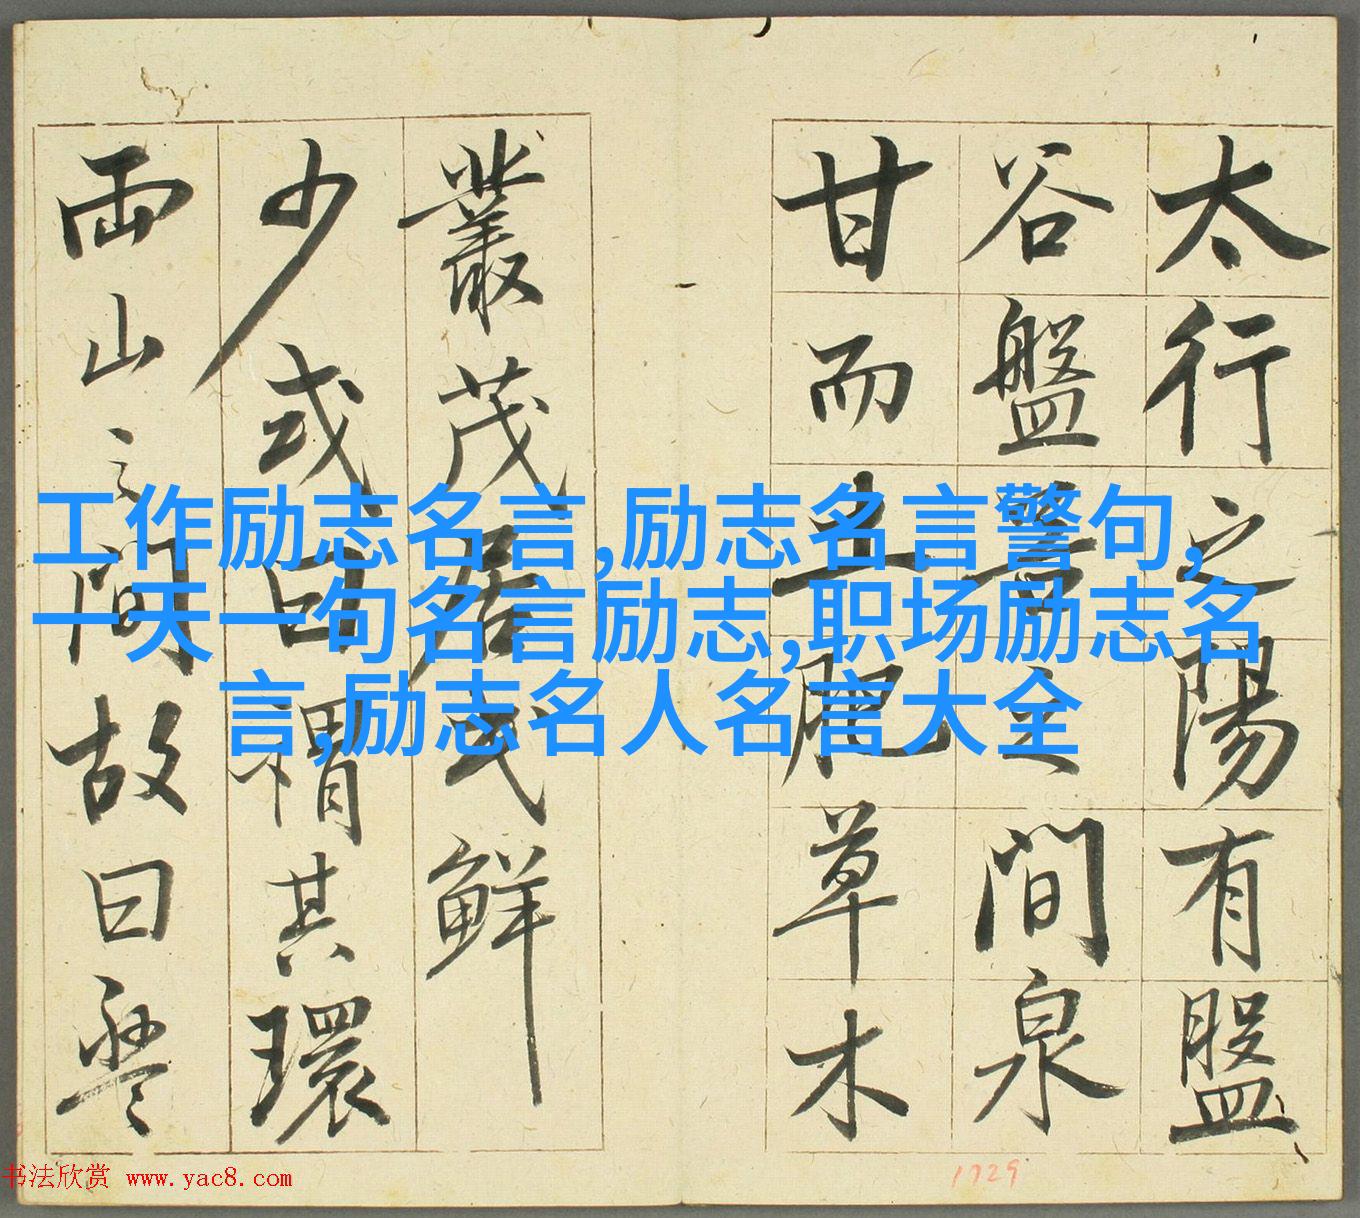 太行之陽有盤
谷盤之間泉
甘而土肥草木
叢茂居民鮮
少或曰謂其環
兩山之間故曰盤
工作励志名言,励志名言警句,
一天一句名言励志,职场励志名
言,励志名人名言大全
书法欣赏 www.yac8.com
1729